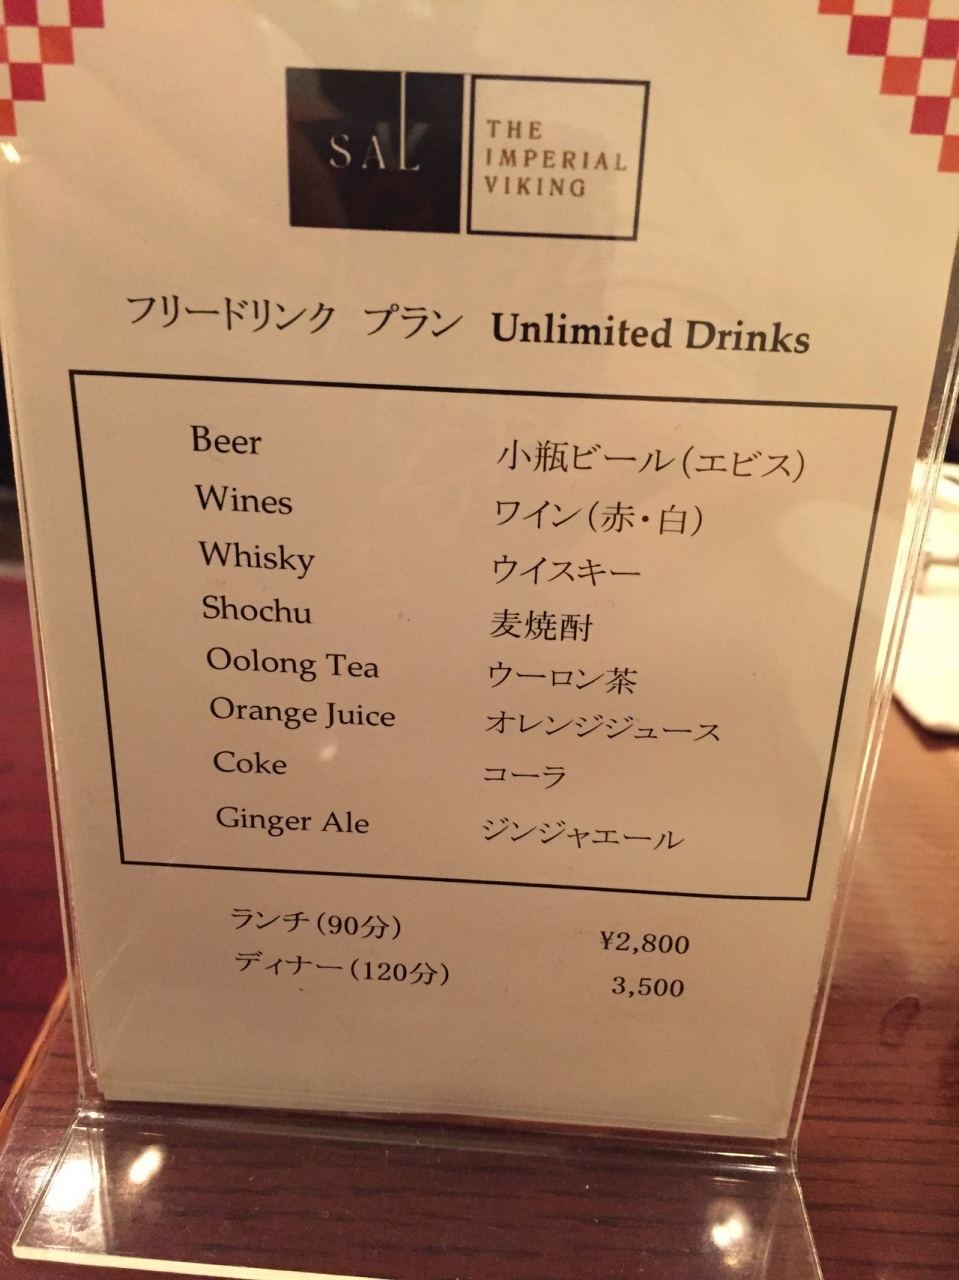 SAL
THE
IMPERIAL
VIKING
フリードリンク プラン Unlimited Drinks
Beer 小瓶ビール(エビス)
Wines ワイン(赤・白)
Whisky ウイスキー
Shochu 麦焼酎
Oolong Tea ウーロン茶
Orange Juice オレンジジュース
Coke コーラ
Ginger Ale ジンジャエール
ランチ(90分) ¥2,800
ディナー(120分) 3,500